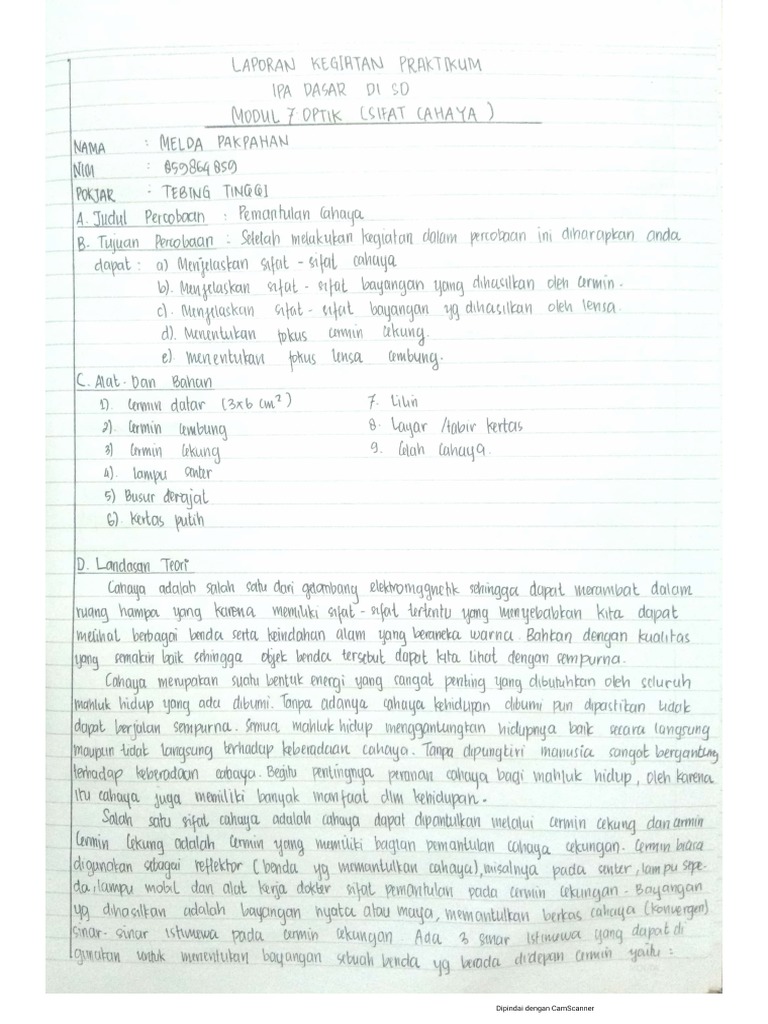 LAPORAN KEGIATAN PRAKTIKUM
IPA DASAR DI SD
MODUL 7 OPTIK (SIFAT CAHAYA)
NAMA : MELDA PAKPAHAN
NIM : 859864859
POKJAR : TEBING TINGGI
A. Judul Percobaan : Pemantulan Cahaya
B. Tujuan Percobaan : Setelah melakukan kegiatan dalam percobaan ini diharapkan anda
dapat : a) Menjelaskan sifat-sifat cahaya
b). Menjelaskan sifat-sifat bayangan yang dihasilkan oleh cermin.
c). Menjelaskan sifat-sifat bayangan yg dihasilkan oleh lensa.
d). Menentukan fokus cermin cekung.
e). menentukan fokus lensa cembung.
C. Alat Dan Bahan
1). Cermin datar (3x6 cm²) 7. Lilin
2). Cermin Cembung 8. Layar / tabir kertas
3) Cermin Cekung 9. Celah Cahaya.
4). lampu senter
5) Busur derajat
6). Kertas putih
D. Landasan Teori
Cahaya adalah salah satu dari gelombang elektromagnetik sehingga dapat merambat dalam
ruang hampa yang karena memiliki sifat-sifat tertentu yang menyebabkan kita dapat
melihat berbagai benda serta keindahan alam yang beraneka warna. Bahkan dengan kualitas
yang semakin baik sehingga objek benda tersebut dapat kita lihat dengan sempurna.
Cahaya merupakan suatu bentuk energi yang sangat penting yang dibutuhkan oleh seluruh
mahluk hidup yang ada dibumi. Tanpa adanya cahaya kehidupan dibumi pun dipastikan tidak
dapat berjalan sempurna. Semua mahluk hidup menggantungkan hidupnya baik secara langsung
maupun tidak langsung terhadap keberadaan cahaya. Tanpa dipungtiri manusia sangat bergantung
terhadap keberadaan cahaya. Begitu pentingnya peranan cahaya bagi mahluk hidup, oleh karena
itu cahaya juga memiliki banyak manfaat dlm kehidupan.
Salah satu sifat cahaya adalah cahaya dapat dipantulkan melalui cermin cekung dan armin
Cermin Cekung adalah Cermin yang memiliki bagian pemantulan cahaya cekungan. Cermin biasa
digunakan sebagai reflektor (benda yg memantulkan cahaya), misalnya pada senter, lampu sepe-
da, lampu mobil dan alat kerja dokter sifat pemantulan pada cermin cekungan. Bayangan
yg dihasilkan adalah bayangan nyata atau maya, memantulkan berkas cahaya (konvergen)
sinar-sinar istimewa pada cermin cekungan. Ada 3 sinar istimewa yang dapat di
gunakan untuk menentukan bayangan sebuah benda yg berada didepan cermin yaitu :
Dipindai dengan CamScanner